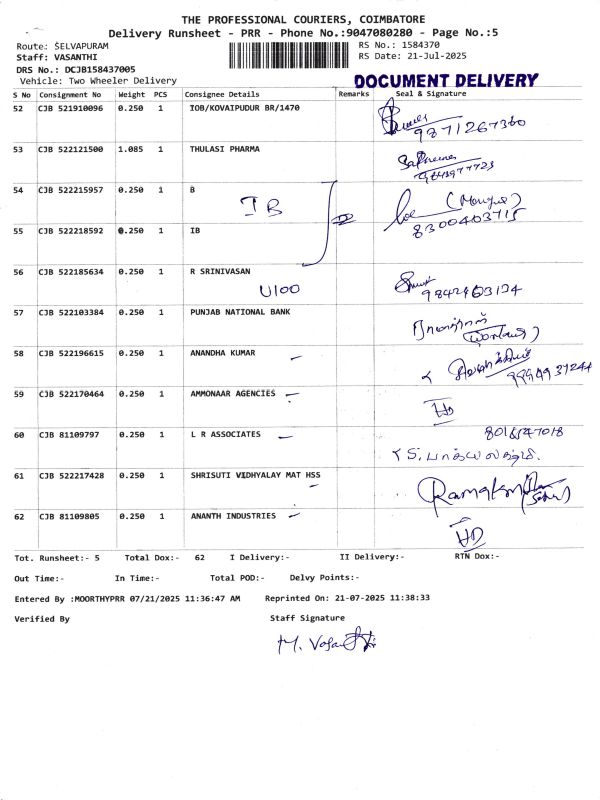 THE PROFESSIONAL COURIERS, COIMBATORE
Delivery Runsheet - PRR - Phone No.:9047080280 - Page No.:5
Route: SELVAPURAM
Staff: VASANTHI
DRS No.: DCJB158437005
Vehicle: Two Wheeler Delivery
RS No.: 1584370
RS Date: 21-Jul-2025
DOCUMENT DELIVERY
S No Consignment No Weight PCS Consignee Details Remarks Seal & Signature
52 CJB 521910096 0.250 1 IOB/KOVAIPUDUR BR/1470
9871267360
53 CJB 522121500 1.085 1 THULASI PHARMA
54 CJB 522215957 0.250 1 B
IB
8300403715
55 CJB 522218592 0.250 1 IB
56 CJB 522185634 0.250 1 R SRINIVASAN
U100
57 CJB 522103384 0.250 1 PUNJAB NATIONAL BANK
58 CJB 522196615 0.250 1 ANANDHA KUMAR
59 CJB 522170464 0.250 1 AMMONAAR AGENCIES
60 CJB 81109797 0.250 1 L R ASSOCIATES
61 CJB 522217428 0.250 1 SHRISUTI VIDHYALAY MAT HSS
62 CJB 81109805 0.250 1 ANANTH INDUSTRIES
Tot. Runsheet:- 5 Total Dox:- 62 I Delivery:- II Delivery:- RTN Dox:-
Out Time:- In Time:- Total POD:- Delvy Points:-
Entered By :MOORTHYPRR 07/21/2025 11:36:47 AM Reprinted On: 21-07-2025 11:38:33
Verified By Staff Signature